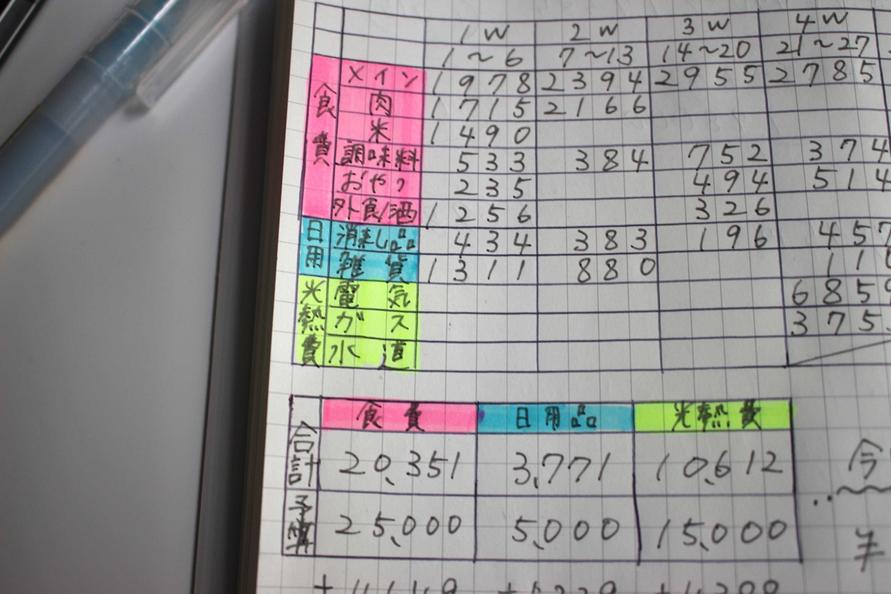 1W 2W 3W 4W
1〜6 7〜13 14〜20 21〜27
食費 メイン 1978 2394 2955 2785
肉 1715 2166
米 1490
調味料 533 384 752 374
おやつ 235 494 514
外食/酒 1256 326
日用 消耗品 434 383 196 457
雑貨 1311 880 110
光熱費 電気 6859
ガス 3753
水道
食費 日用品 光熱費
合計 20,351 3,771 10,612
今
予算 25,000 5,000 15,000